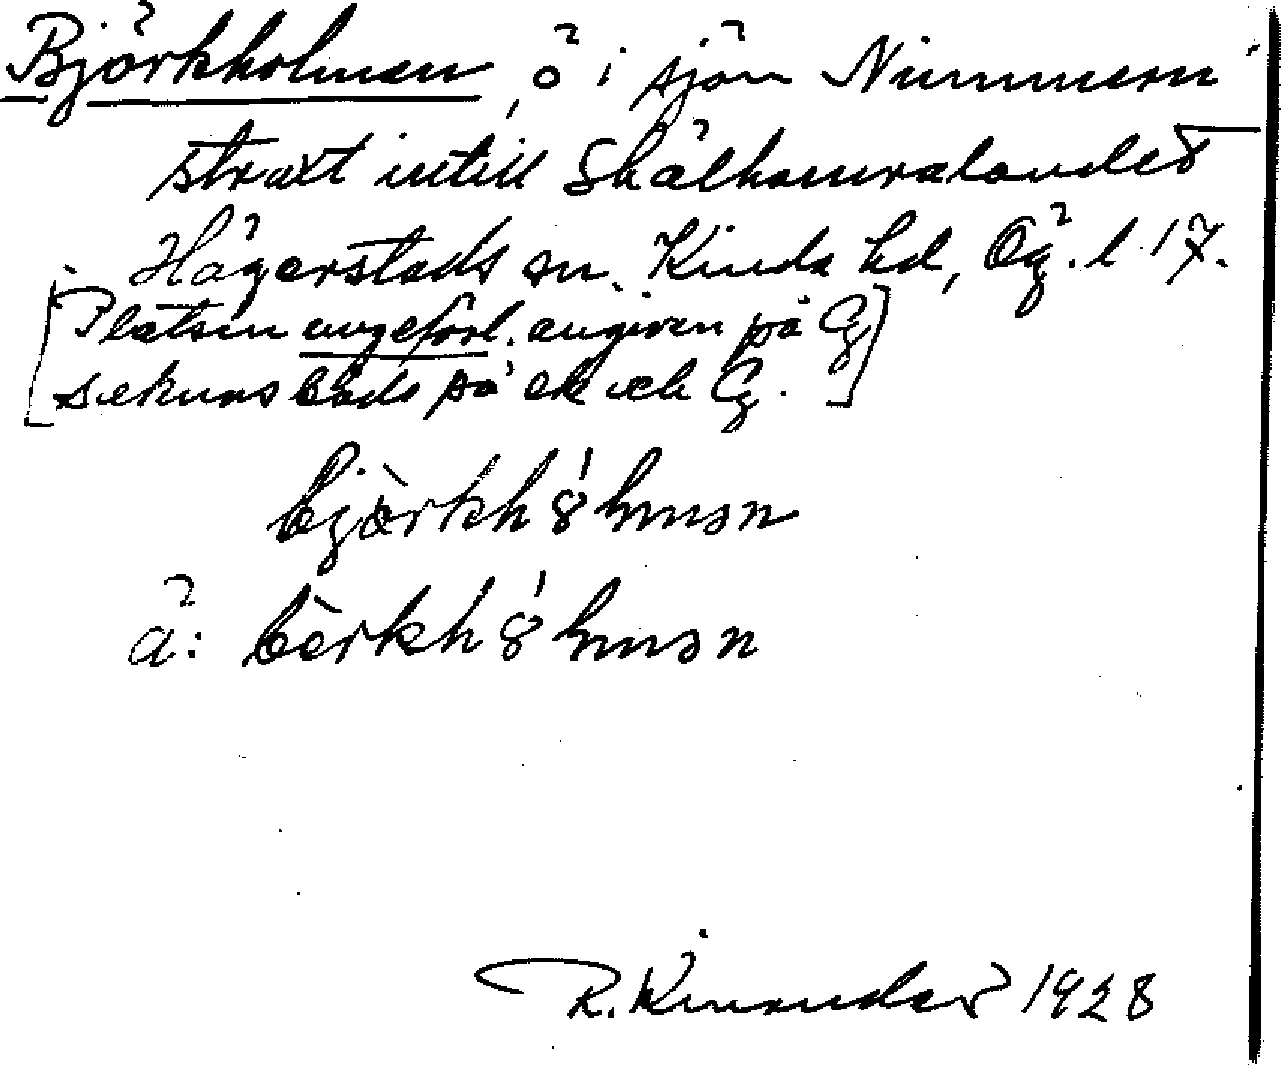 Björkholmen, ö i sjön Nimmern
straxt intill Skälhamralandet
Hägerstads sn. Kinda hd, Ög. l 17.
[Platsen ungefärl. angiven på Cg
sekuns blads på ek och Cg.]
bjòrkhȣ́lmən
ä: bèrkhȣ́lmən
R. Kinander 1928